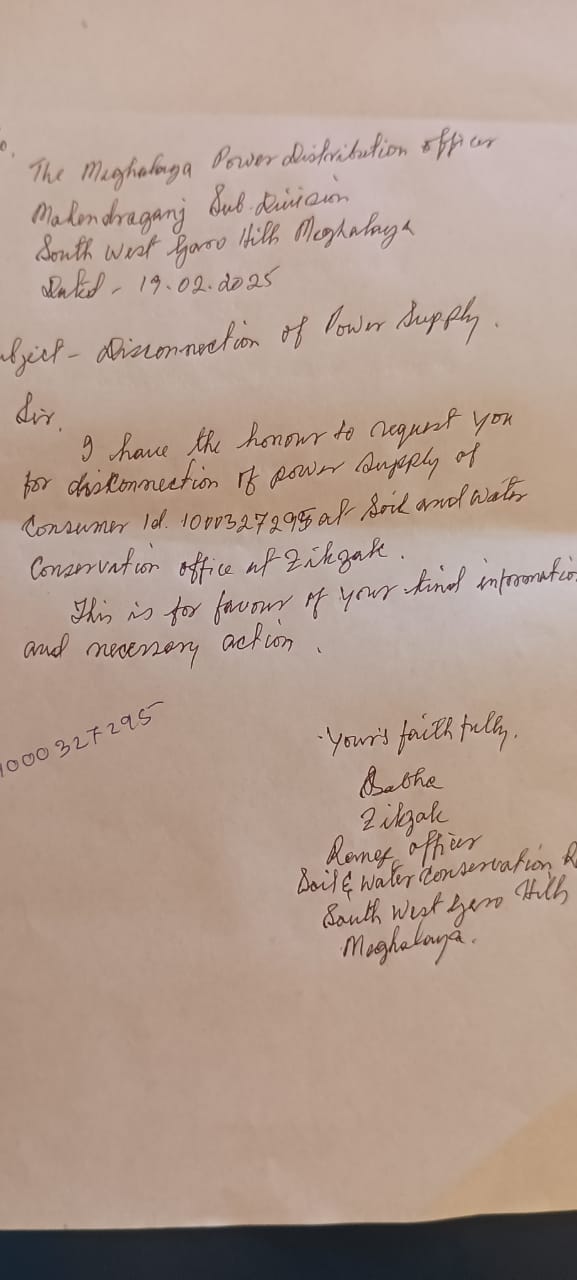 o,
The Meghalaya Power Distribution officer
Mahendraganj Sub. Division
South West Garo Hills Meghalaya
Dated - 19.02.2025
bject - Disconnection of Power Supply.
Sir,
I have the honour to request you
for disconnection of power supply of
Consumer Id. 1000327295 at Soil and Water
Conservation office at Zikzak.
This is for favour of your kind informatio
and necessary action.
1000327295
Your's faithfully.
Zikzak
Range officer
Soil & Water Conservation R
South West Garo Hills
Meghalaya.